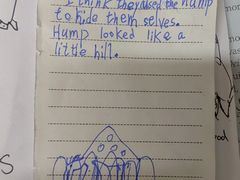 I think they used the hump
to hide them selves.
Hump looked like a
little hill.